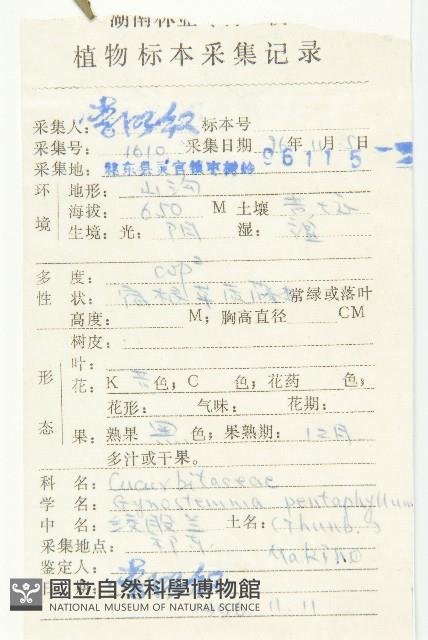 植物标本采集记录
采集人: 标本号
采集号: 1610 采集日期 96年11月5日
采集地: 邵东县灵官镇枣树岭 96115
环境 地形: 山沟
海拔: 650 M 土壤 黄
生境: 光: 阴 湿: 湿
多度: cop²
性状: 常绿或落叶
高度: M; 胸高直径 CM
树皮:
形态 叶:
花: K 黄色; C 色; 花药 色,
花形: 气味: 花期:
果: 熟果 黑 色; 果熟期: 12月
多汁或干果。
科名: Cucurbitaceae
学名: Gynostemnia pentaphyllum
中名: 绞股兰 土名: (Thunb.)
采集地点: 邵东 Makino
鉴定人:
日期: 11.11
國立自然科學博物館
NATIONAL MUSEUM OF NATURAL SCIENCE